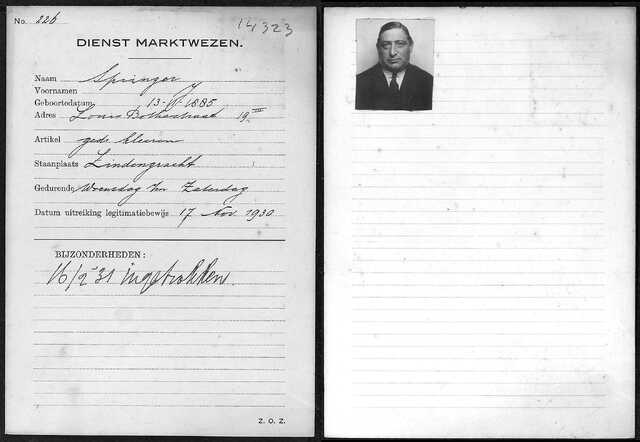 No. 226
14323
DIENST MARKTWEZEN.
Naam Springer
Voornamen J
Geboortedatum, 13-VI-1885
Adres Louis Bothastraat 19 III
Artikel gedr. kleeren
Staanplaats Lindengracht
Gedurende Woensdag t/m Zaterdag
Datum uitreiking legitimatiebewijs 17 Nov. 1930
BIJZONDERHEDEN:
16/2-31 ingetrokken.
Z. O. Z.